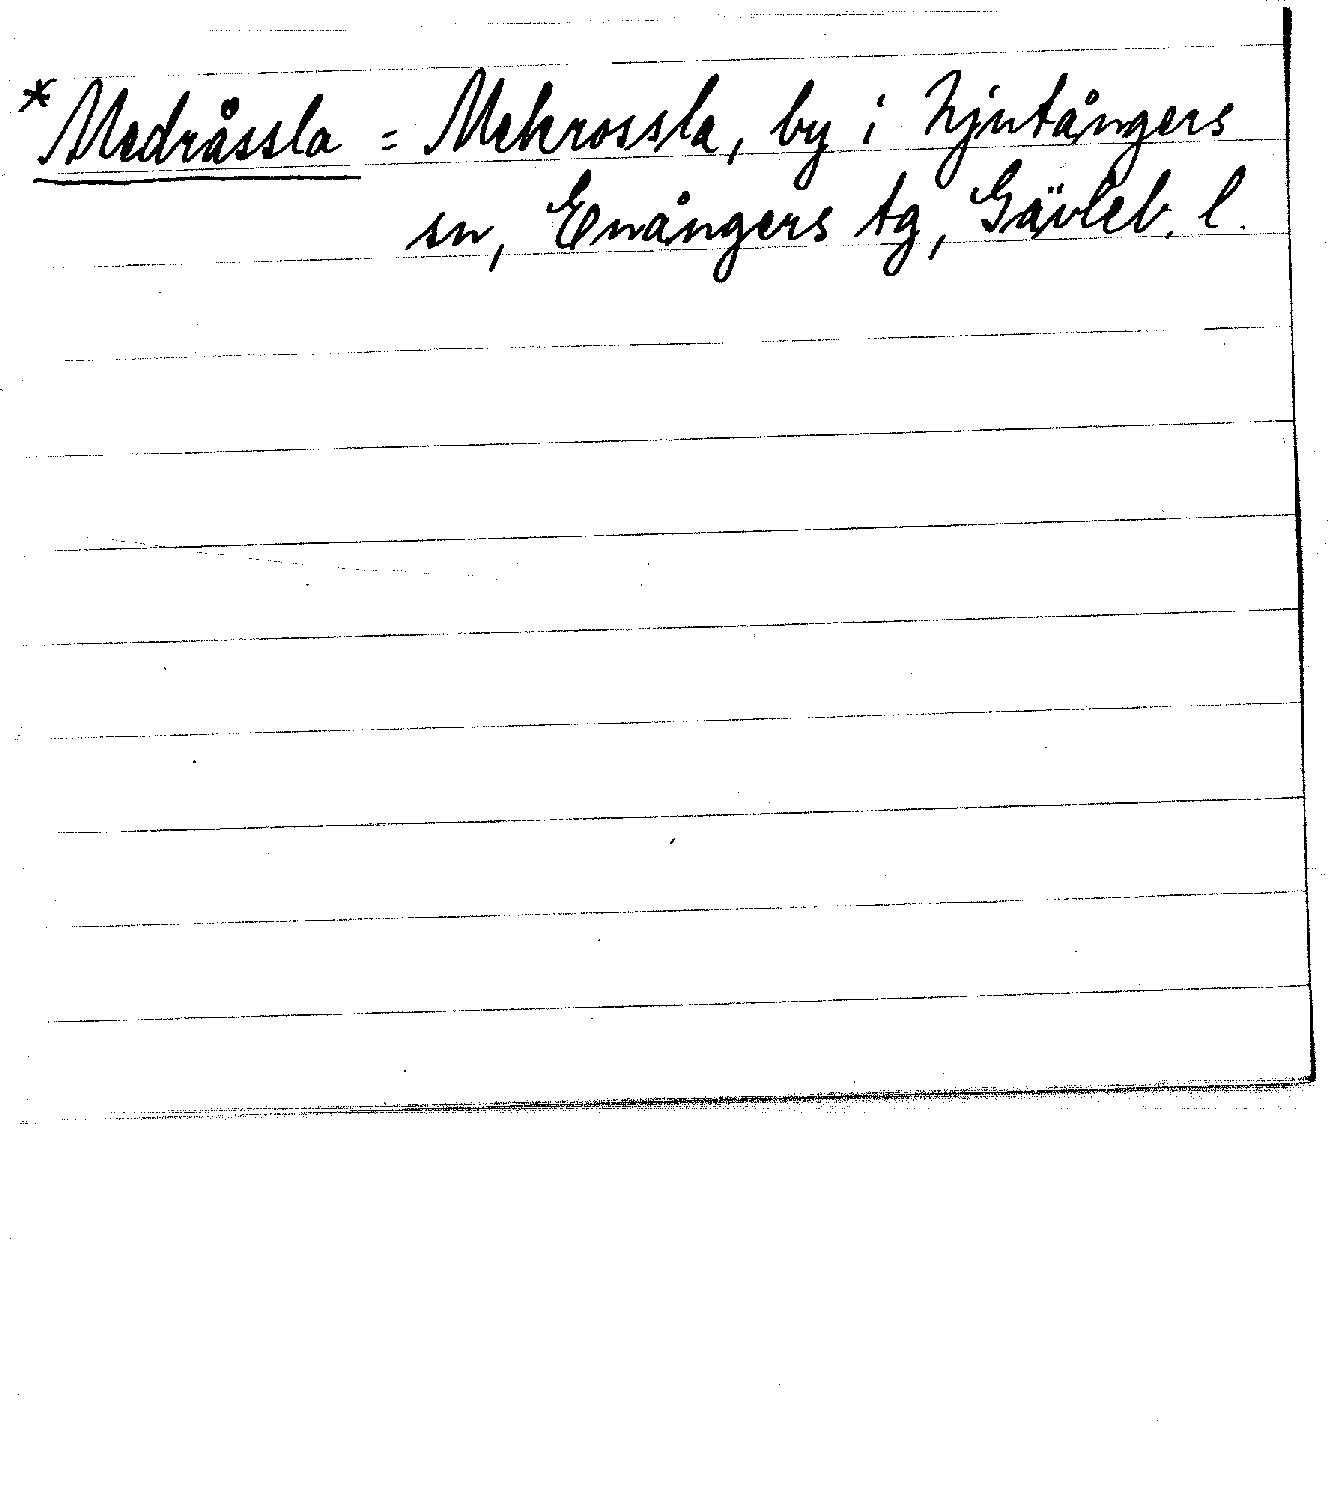 *Medråssla = Mekrossla, by i Njutångers
sn, Enångers tg, Gävleb. l.